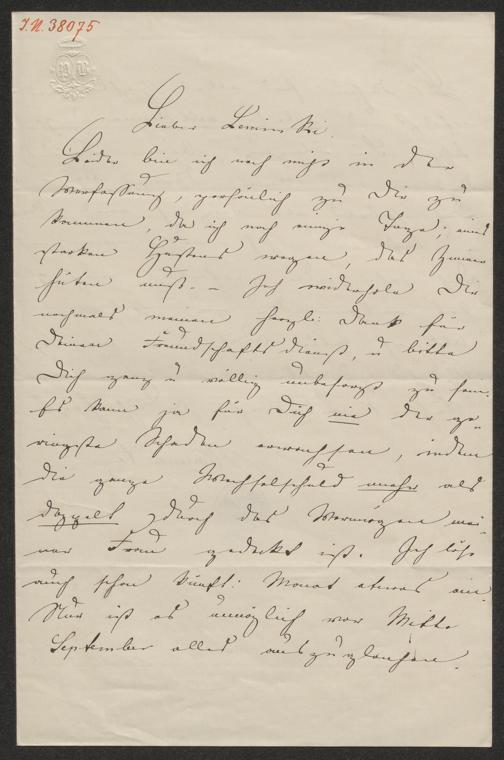 I.N. 38075
Lieber Leminski
Leider bin ich noch nicht in der
Verfassung, persönlich zu Dir zu
kommen, da ich noch einige Tage, eines
starken Hustens wegen, das Zimmer
hüten muß. – Ich widerhole Dir
nochmals meinen herzl: Dank für
Deinen Freundschaftsdienst, u bitte
Dich ganz u völlig unbesorgt zu sein.
Es kann ja für Dich nie der ge-
ringste Schaden erwachsen, indem
die ganze Wechselschuld mehr als
doppelt durch das Vermögen mei-
ner Frau gedeckt ist. Ich löse
auch schon künft: Monat etwas ein.
Nur ist es unmöglich vor Mitte
September alles auszugleichen.